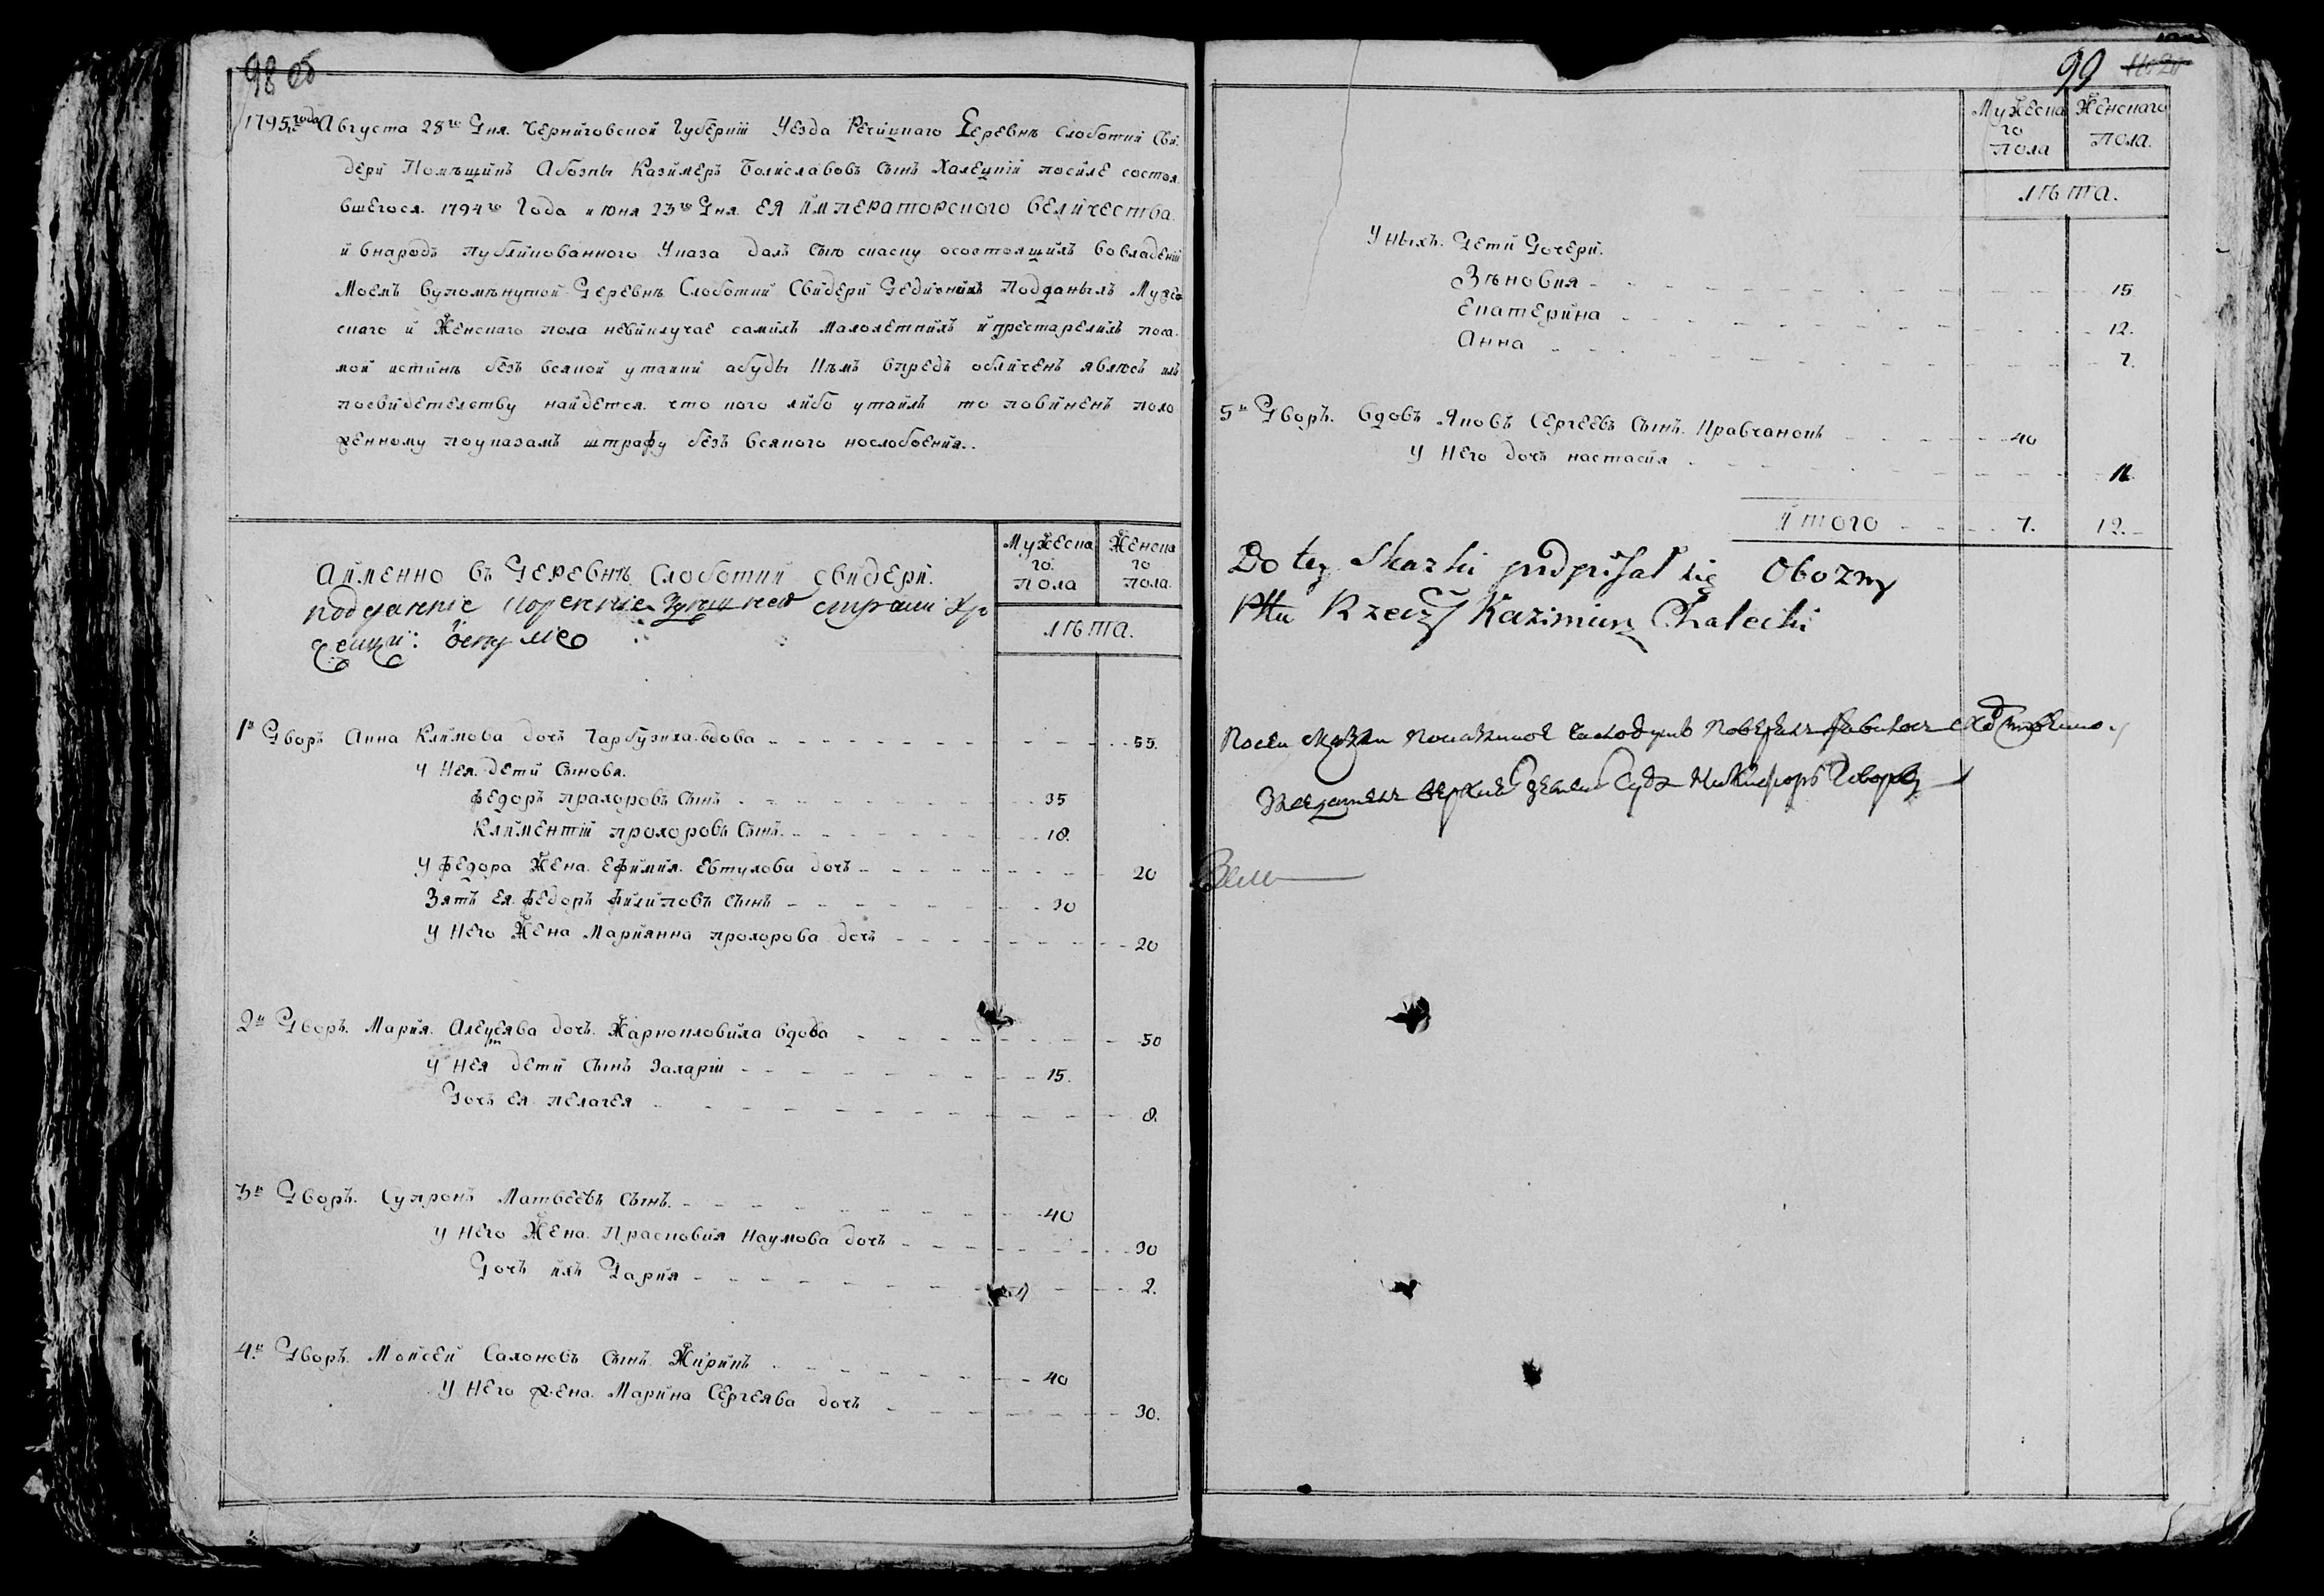 98 об
1795 года Августа 28го Дня. Черниговской Губернїи Уезда Речицкаго Деревнѣ Слободки Сви
дери Помѣщикъ Абозны Казимеръ Болиславовъ Сынъ Халецкїй посиле состоя
вшегося. 1794го Года июня 23го Дня ЕЯ ИМПЕРАТОРСКОГО ВЕЛИЧЕСТВА
и внародъ публикованного Указа далъ сѣю скаску осостоящихъ вовладенїи
Моемъ вупомѣнутой Деревнѣ Слободки Свидери Дедичнихъ Подданыхъ Мужес
скаго и Женскаго пола невиключае самихъ малолетнихъ и престарелихъ поса
мой истинѣ безъ всякой утайки абуды кѣмъ впредъ обличенъ явлюсь илъ
посвидетелству найдется что кого либо утаилъ то повиненъ поло
женному поуказамъ штрафу безъ всякого послобления..
Мужеска
го
пола
Женска
го
пола
лѣта.
Аименно въ Деревнѣ Слоботки Свидери.
подданние
1й Дворъ Анна Климова дочъ Гарбузиха вдова 55.
У Нея дети Сынова.
Федоръ прахоровъ Сынъ 35
Климентїй прохоровъ Сынъ. 18.
У Федора Жена. Ефимия. Евтухова дочъ 20
Зять Ея Федоръ Филиповъ Сынъ 30
У Него Жена Марїянна прохорова дочъ 20
2й Дворъ. Мария. Алексеява дочъ. Жарнопловиха вдова 50
У Нея дети Сынъ Захарїи 15.
Дочъ ея пелагея 8.
3й Дворъ. Супронъ Матвеевъ Сынъ. 40
У Него Жена. Прасковия Наумова дочъ 30
Дочъ ихъ Дария 2.
4й Дворъ. Мойсей Сахоновъ Сынъ Жирикъ 40
У Него жена. Марина Сергеява дочъ 30.
99
Мужеска
го
пола
Женскаго
пола.
лѣта.
У ныхъ. Дети Дочери.
Зѣновия 15
Екатерина 12.
Анна 7.
5й Дворъ. вдовъ Яковъ Сергеевъ Сынъ. Кравчанокъ 40
У Него дочъ настасия
Итого 7. 12.
Do tey Skazki podpisał się Obozny
Pttu Rzecz Kazimierz Chalecki